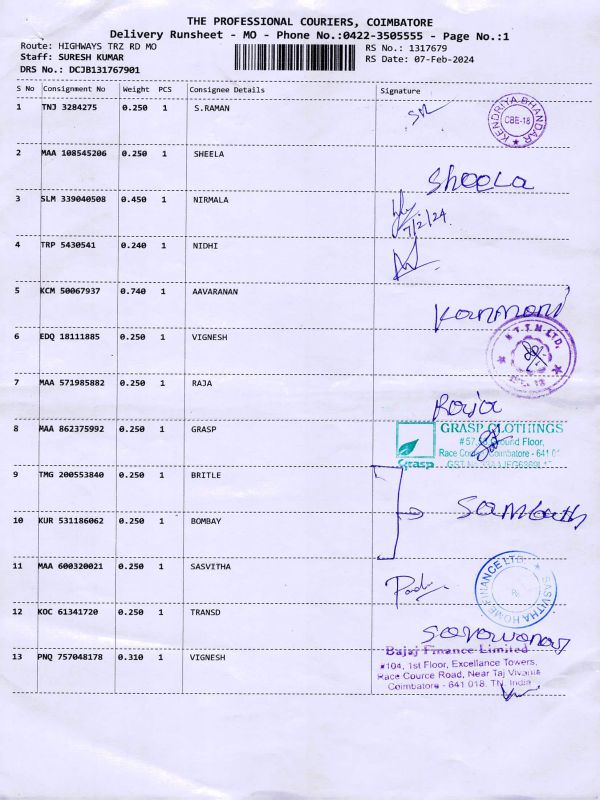 THE PROFESSIONAL COURIERS, COIMBATORE
Delivery Runsheet - MO - Phone No.:0422-3505555 - Page No.:1
Route: HIGHWAYS TRZ RD MO RS No.: 1317679
Staff: SURESH KUMAR RS Date: 07-Feb-2024
DRS No.: DCJB131767901
S No Consignment No Weight PCS Consignee Details Signature
1 TNJ 3284275 0.250 1 S.RAMAN
KENDRIYA BHANDAR CBE-18
2 MAA 108545206 0.250 1 SHEELA
Sheela
3 SLM 339040508 0.450 1 NIRMALA
7/2/24.
4 TRP 5430541 0.240 1 NIDHI
5 KCM 50067937 0.740 1 AAVARANAN
Kanmani
6 EDQ 18111885 0.250 1 VIGNESH
N.T.T.M-LTD,
7 MAA 571985882 0.250 1 RAJA
Raja
8 MAA 862375992 0.250 1 GRASP
GRASP CLOTHINGS
Ground Floor,
Race Coimbatore - 641
Grasp
9 TMG 200553840 0.250 1 BRITLE
Sambath
10 KUR 531186062 0.250 1 BOMBAY
11 MAA 600320021 0.250 1 SASVITHA
SASVITHA HOME FINANCE LTD
12 KOC 61341720 0.250 1 TRANSD
Saravanan
13 PNQ 757048178 0.310 1 VIGNESH
Bajaj Finance Limited
#104, 1st Floor, Excellance Towers,
Race Cource Road, Near Taj Vivanta
Coimbatore - 641 018. TN, India